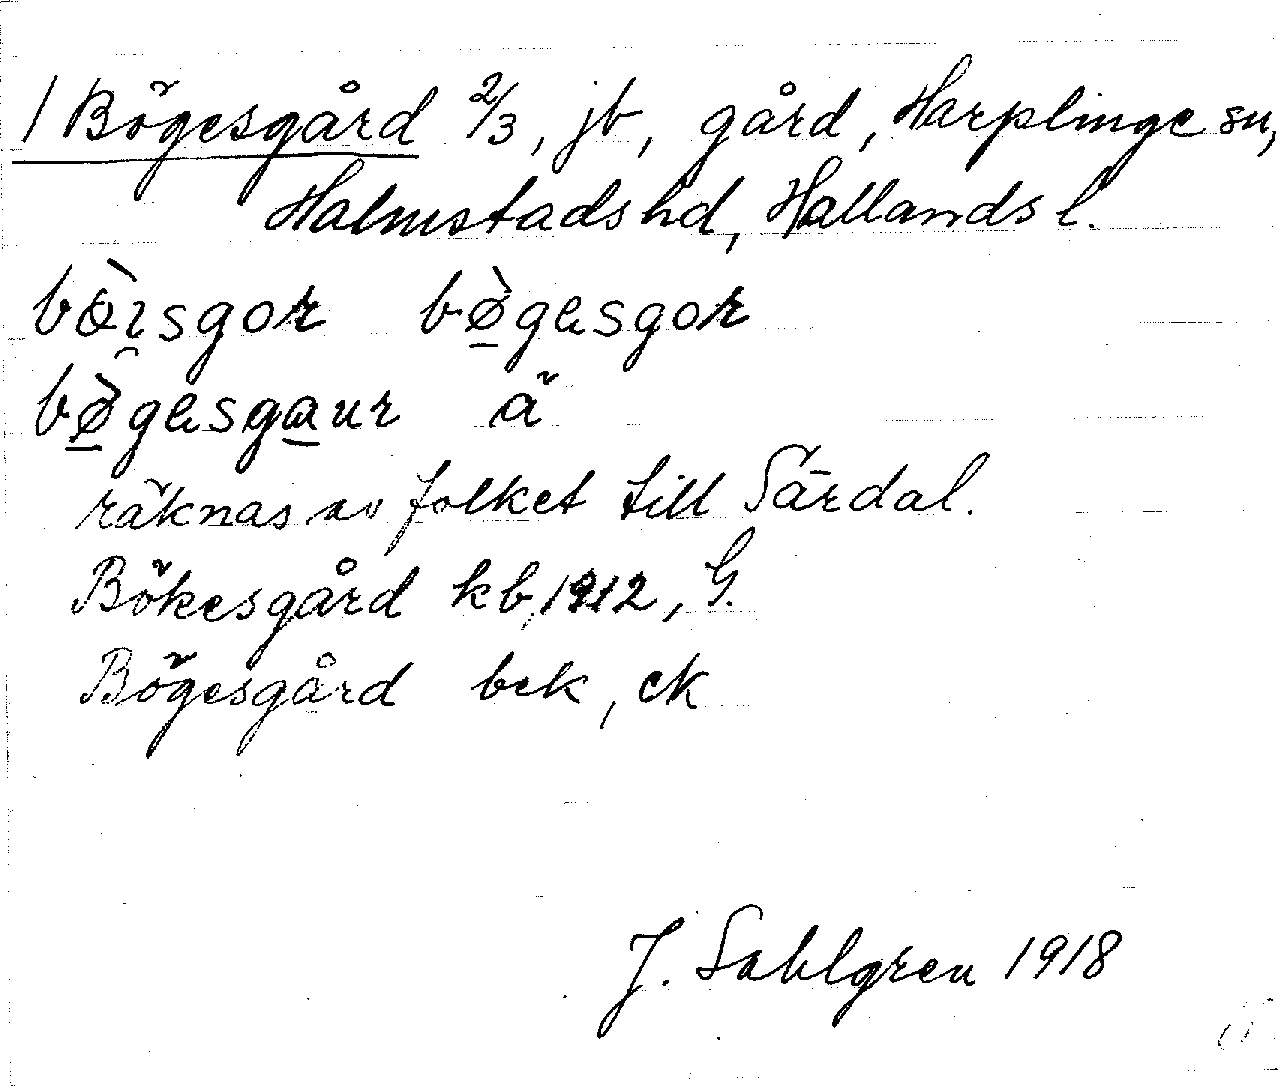 1 Bögesgård 2/3, jb, gård, Harplinge sn,
Halmstads hd, Hallands l.
bö̀ı̯sgor bø̠̀gesgor
bø̠̀gesga̠ur ä
räknas av folket till Särdal.
Bökesgård kb 1912, G.
Bögesgård bek, ek
J. Sahlgren 1918